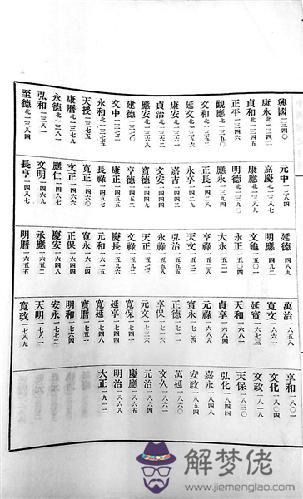 興國一三四〇
康永北一三四二
貞和北一三四五
正平一三四六
觀應北一三五〇
文和北一三五二
延文北一三五六
康安北一三六一
貞治北一三六二
應安北一三六八
建德一三七〇
文中一三七二
永和北一三七五
天授一三七五
康曆北一三七九
永德北一三八一
弘和一三八一
至德北一三八四
元中一三八四
嘉慶北一三八七
康應北一三八九
明德北一三九〇
應永一三九四
正長一四二八
永享一四二九
嘉吉一四四一
文安一四四四
寶德一四四九
享德一四五二
康正一四五五
長祿一四五七
寬正一四六〇
文正一四六六
應仁一四六七
文明一四六九
長享一四八七
延德一四八九
明應一四九二
文龜一五〇一
永正一五〇四
大永一五二一
享祿一五二八
天文一五三二
弘治一五五五
永祿一五五八
天正一五七三
文祿一五九二
慶長一五九六
元和一六一五
寬永一六二四
正保一六四四
慶安一六四八
承應一六五二
明曆一六五五
萬治一六五八
寬文一六六一
延寶一六七三
天和一六八一
貞享一六八四
元祿一六八八
寶永一七〇四
正德一七一一
享保一七一六
元文一七三六
寬保一七四一
延享一七四四
寬延一七四八
寶曆一七五一
明和一七六四
安永一七七二
天明一七八一
寬政一七八九
享和一八〇一
文化一八〇四
文政一八一八
天保一八三〇
弘化一八四四
嘉永一八四八
安政一八五四
萬延一八六〇
文久一八六一
元治一八六四
慶應
明治一八六八
大正
解梦佬
www.jiemenglao.com